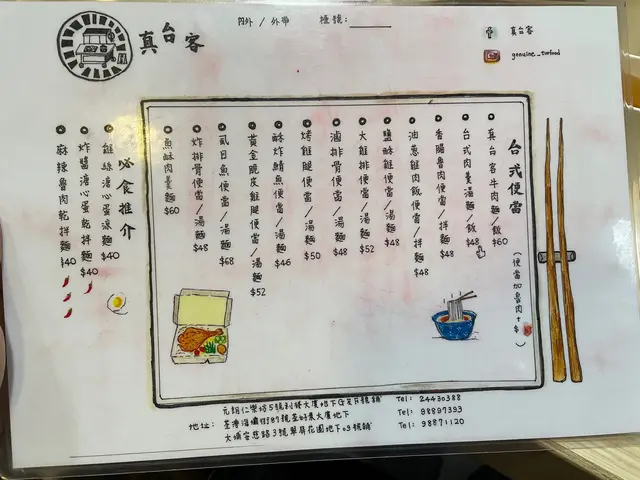 真台客
內外 / 外帶 檯號:
真台客
genuine_twfood
台式便當
(便當加魯肉+$ )
真台客牛肉麵/飯 $60
台式肉羹湯麵/飯 $48
香腸魯肉便當/拌麵 $48
油蔥雞肉飯便當/拌麵 $48
鹽酥雞便當/湯麵 $48
大雞排便當/湯麵 $52
滷排骨便當/湯麵 $48
烤雞腿便當/湯麵 $50
酥炸鯖魚便當/湯麵 $46
黃金脆皮雞腿便當/湯麵 $52
虱目魚便當/湯麵 $68
炸排骨便當/湯麵 $48
魚酥肉羹麵 $60
必食推介
雞絲溏心蛋湯麵 $40
炸醬溏心蛋乾拌麵 $40
麻辣魯肉乾拌麵 $40
地址:
元朗仁樂坊5號利發大廈地下G至H號舖 Tel: 24430388
荃灣海壩街87號荃好東大廈地下 Tel: 98897393
大埔安慈路3號翠屏花園地下09號舖 Tel: 98871120